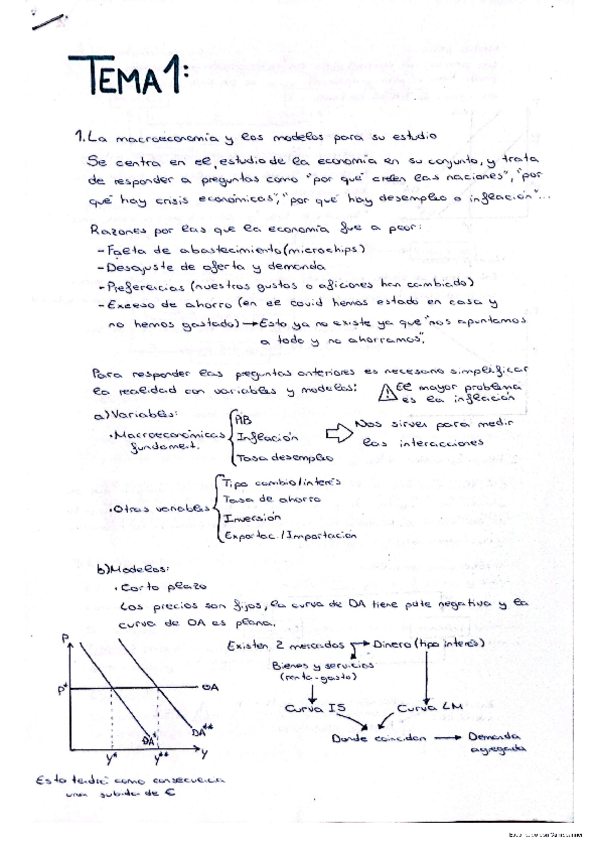 TEMA 1:
1. La macroeconomía y los modelos para su estudio
Se centra en el estudio de la economía en su conjunto, y trata
de responder a preguntas como "por qué crecen las naciones", "por
qué hay crisis económicas", "por qué hay desempleo o inflación"...
Razones por las que la economía fue a peor:
- Falta de abastecimiento (microchips)
- Desajuste de oferta y demanda
- Preferencias (nuestros gustos o aficiones han cambiado)
- Exceso de ahorro (en el covid hemos estado en casa y
no hemos gastado) → Esto ya no existe ya que "nos apuntamos
a todo y no ahorramos".
Para responder las preguntas anteriores es necesario simplificar
la realidad con variables y modelos:
⚠ El mayor problema
es la inflación
a) Variables:
• Macroeconómicas
fundament.
PIB
Inflación
Tasa desempleo
Nos sirven para medir
las interacciones
• Otras variables
Tipo cambio/interés
Tasa de ahorro
Inversión
Exportac./Importación
b) Modelos:
• Corto plazo
Los precios son fijos, la curva de DA tiene pdte negativa y la
curva de OA es plana.
P
P*
OA
DA*
DA**
Y*
Y**
Y
Existen 2 mercados → Dinero (tipo interés)
Bienes y servicios
(renta-gasto)
Curva IS
Curva LM
Donde coinciden → Demanda
agregada
Esto tendrá como consecuencia
una subida de €